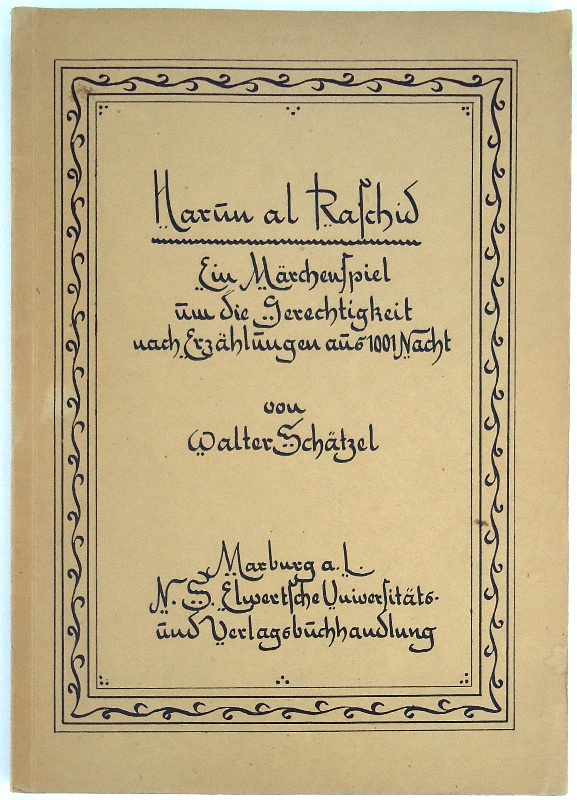 Harūn al Raſchid
Ein Märchenſpiel
ūm die Gerechtigkeit
nach Erzählūngen aūs 1001 Nacht
von
Walter Schätzel
Marburg a. L.
N. G. Elwertſche Univerſitäts-
ūnd Verlagsbūchhandlung